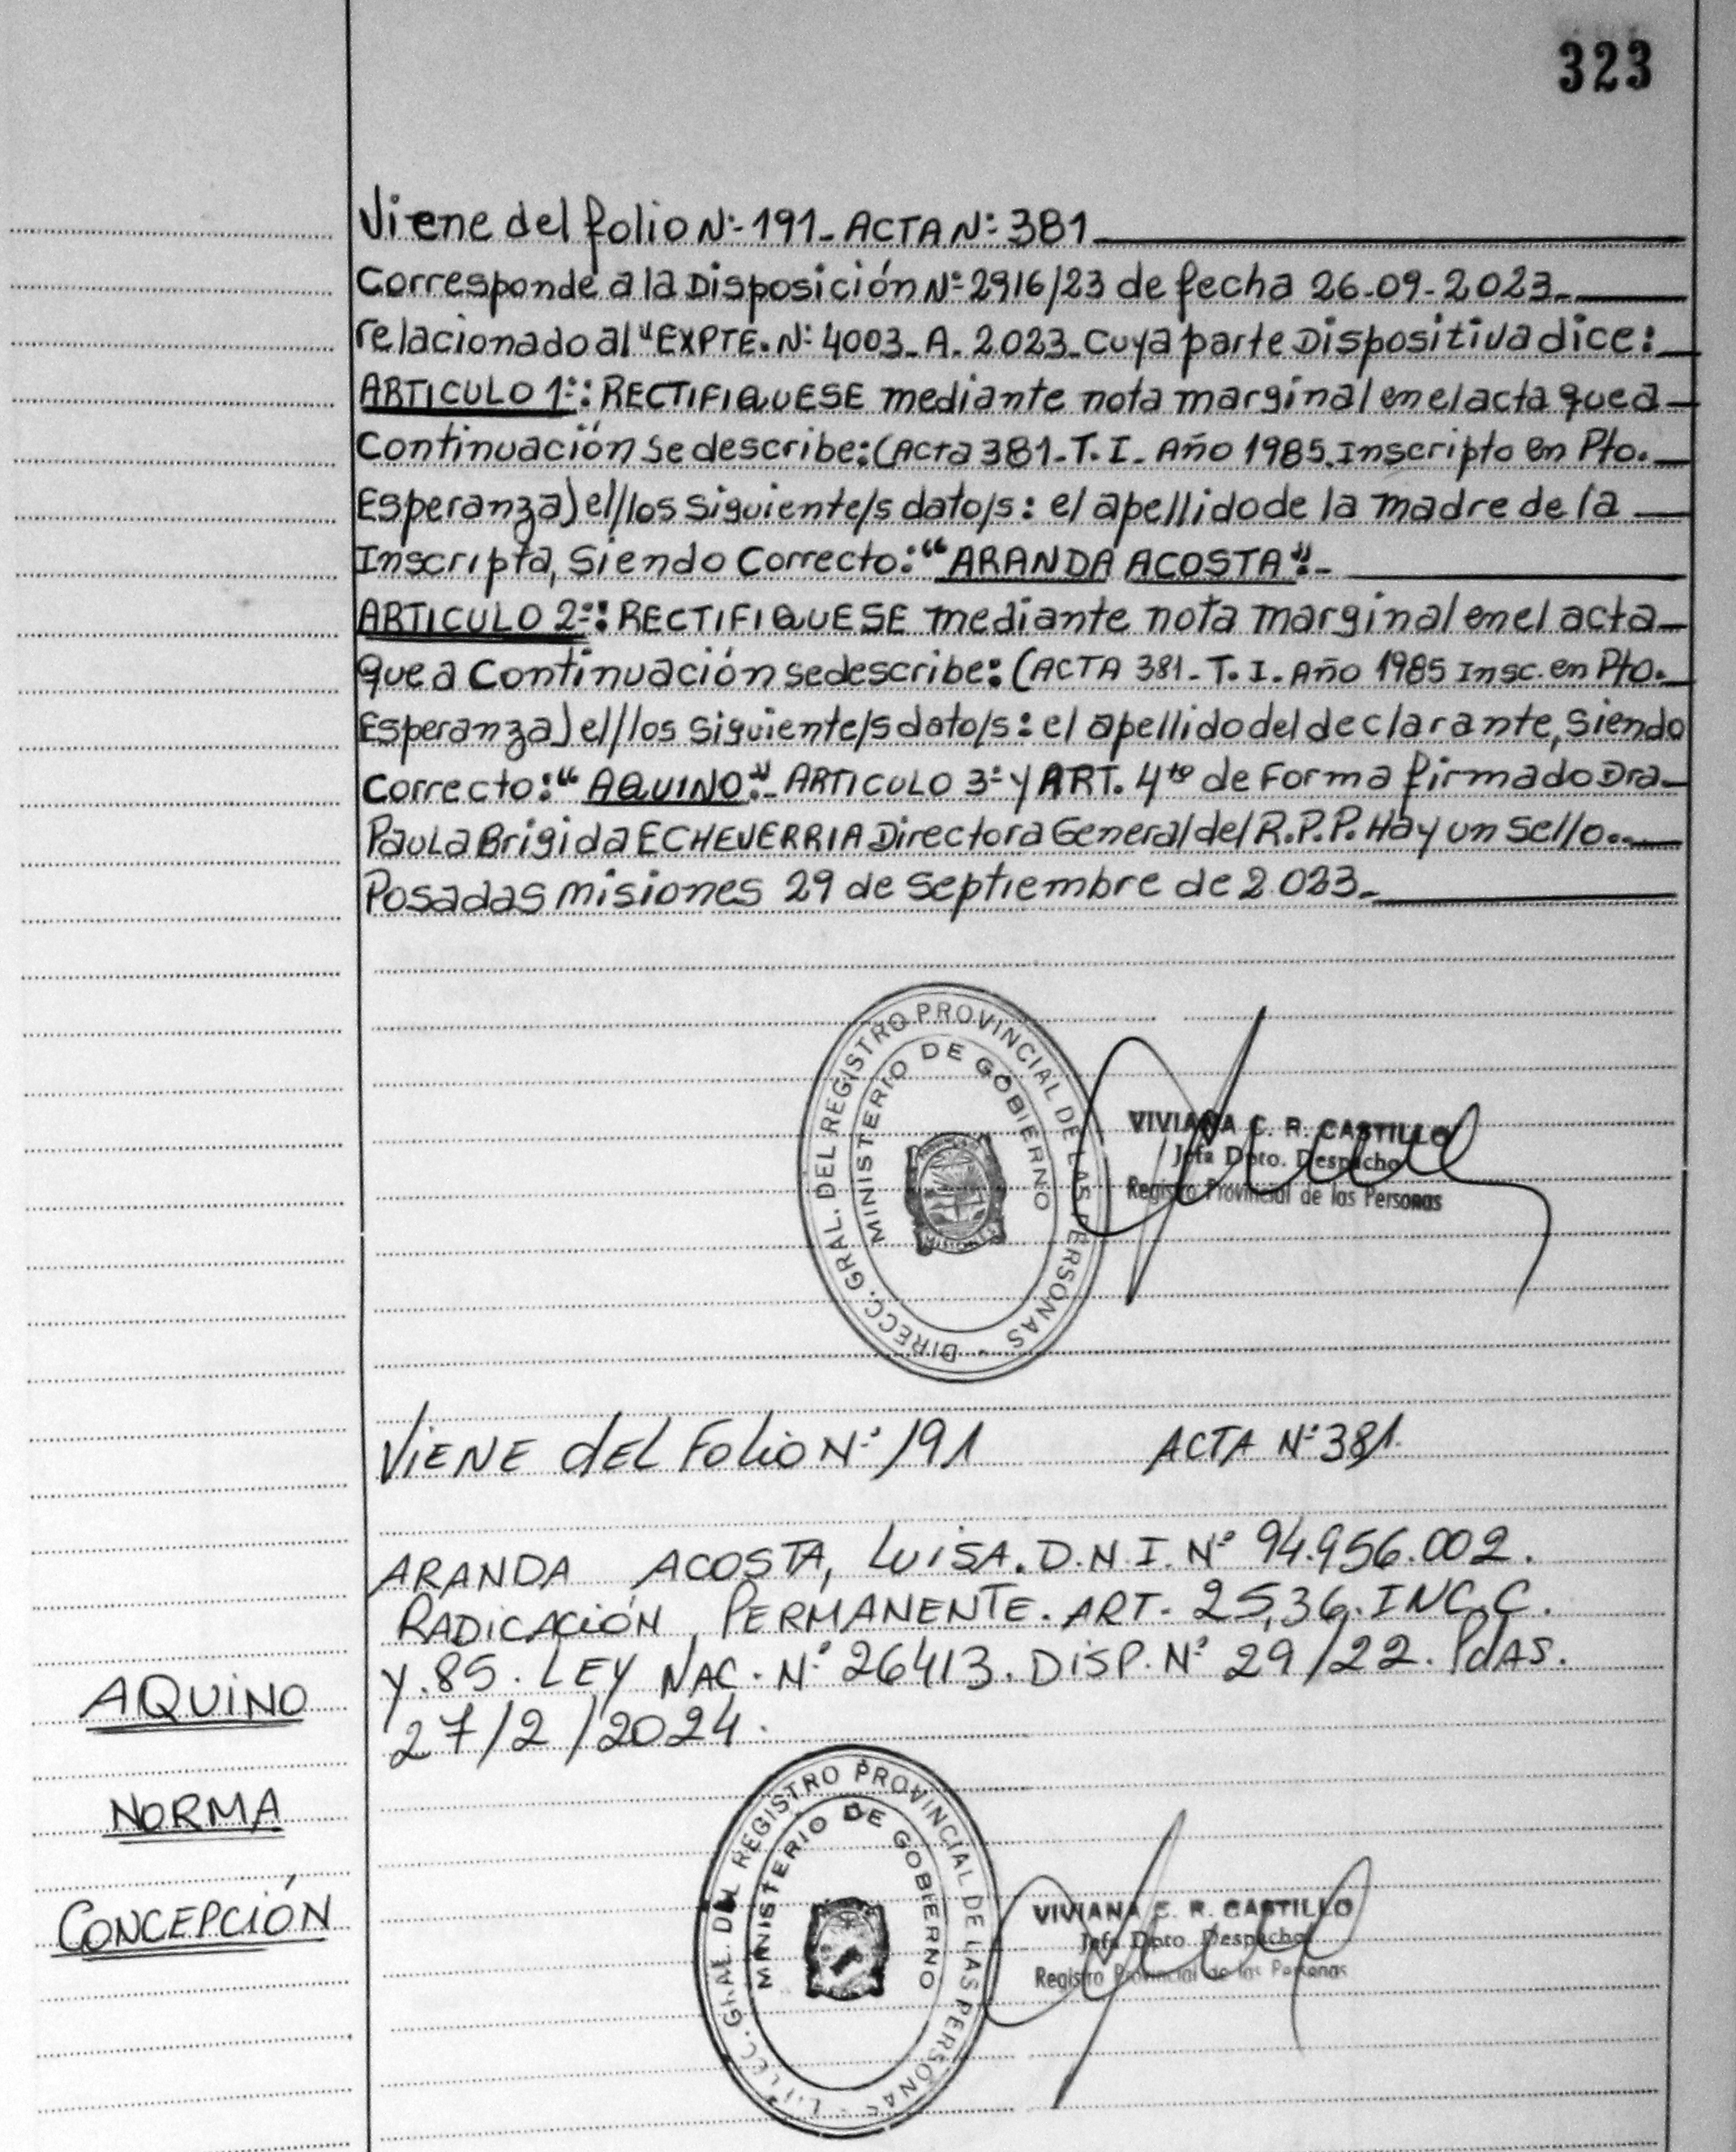 323
Viene del folio Nº 191_ ACTA Nº 381
Corresponde a la Disposición Nº 2916/23 de fecha 26-09-2023_
relacionado al "EXPTE. Nº 4003_A_2023_ Cuya parte Dispositiva dice:_
ARTICULO 1º: RECTIFIQUESE mediante nota marginal en el acta que a_
Continuación se describe: (Acta 381_T.I_ Año 1985. Inscripto en Pto._
Esperanza) el/los siguiente/s dato/s: el apellido de la madre de la_
Inscripta, Siendo Correcto: "ARANDA ACOSTA"._
ARTICULO 2º: RECTIFIQUESE mediante nota marginal en el acta_
que a Continuación se describe: (ACTA 381_T.I. Año 1985 Insc. en Pto._
Esperanza) el/los siguiente/s dato/s: el apellido del declarante, Siendo
Correcto: "AQUINO"._ ARTICULO 3º y ART. 4to de Forma firmado Dra_
Paula Brigida ECHEVERRIA Directora General del R.P.P. Hay un Sello._
Posadas Misiones 29 de septiembre de 2.023_
DIRECC. GRAL. DEL REGISTRO PROVINCIAL DE LAS PERSONAS -
MINISTERIO DE GOBIERNO
MISIONES
VIVIANA C. R. CASTILLO
Jefa Dpto. Despacho
Registro Provincial de las Personas
VIENE dEL Folio Nº 191 ACTA Nº 381.
ARANDA ACOSTA, LUISA. D.N.I. Nº 94.956.002.
RADICACIÓN PERMANENTE. ART. 25,36. INC.C.
Y.85. LEY NAC. Nº 26413. DISP. Nº 29/22. PdAS.
27/2/2024.
AQUINO
NORMA
CONCEPCIÓN
DIRECC. GRAL DEL REGISTRO PROVINCIAL DE LAS PERSONAS -
MINISTERIO DE GOBIERNO
VIVIANA C. R. CASTILLO
Jefa Dpto Despacho
Registro Provincial de las Personas